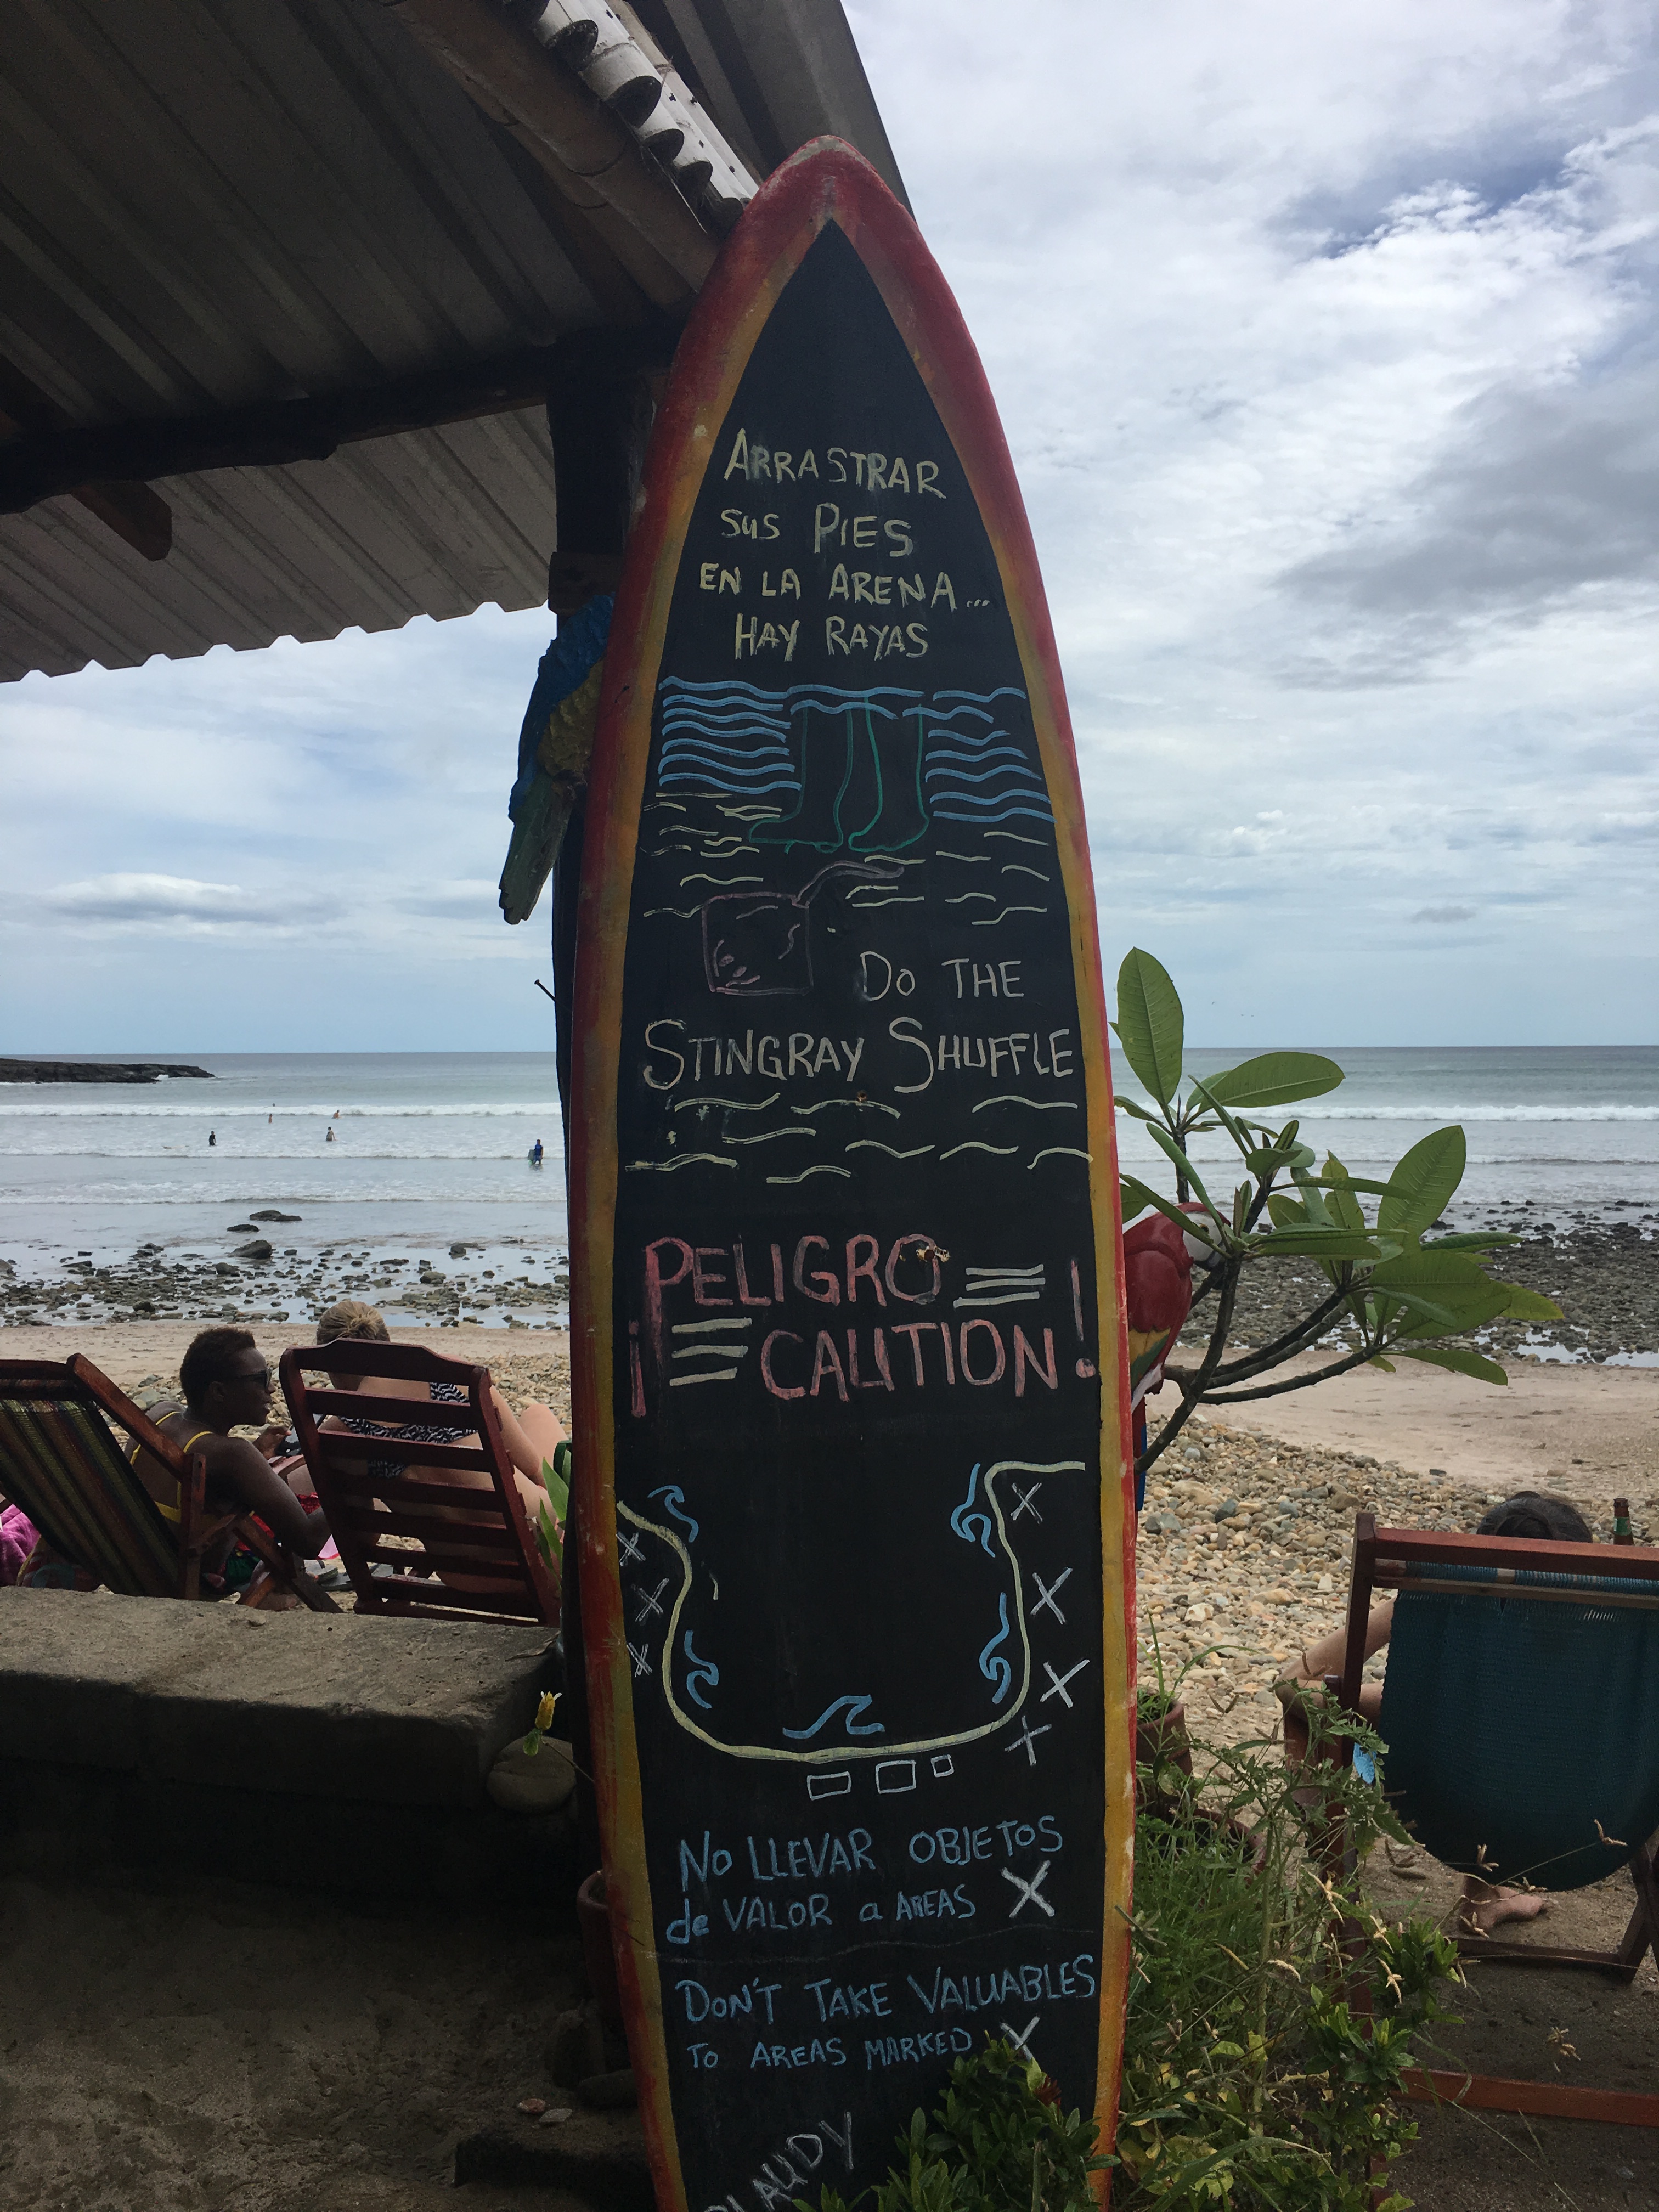 ARRASTRAR
SUS PIES
EN LA ARENA...
HAY RAYAS
DO THE
STINGRAY SHUFFLE
PELIGRO
¡ CAUTION!
NO LLEVAR OBJETOS
de VALOR a AREAS X
DON'T TAKE VALUABLES
TO AREAS MARKED X